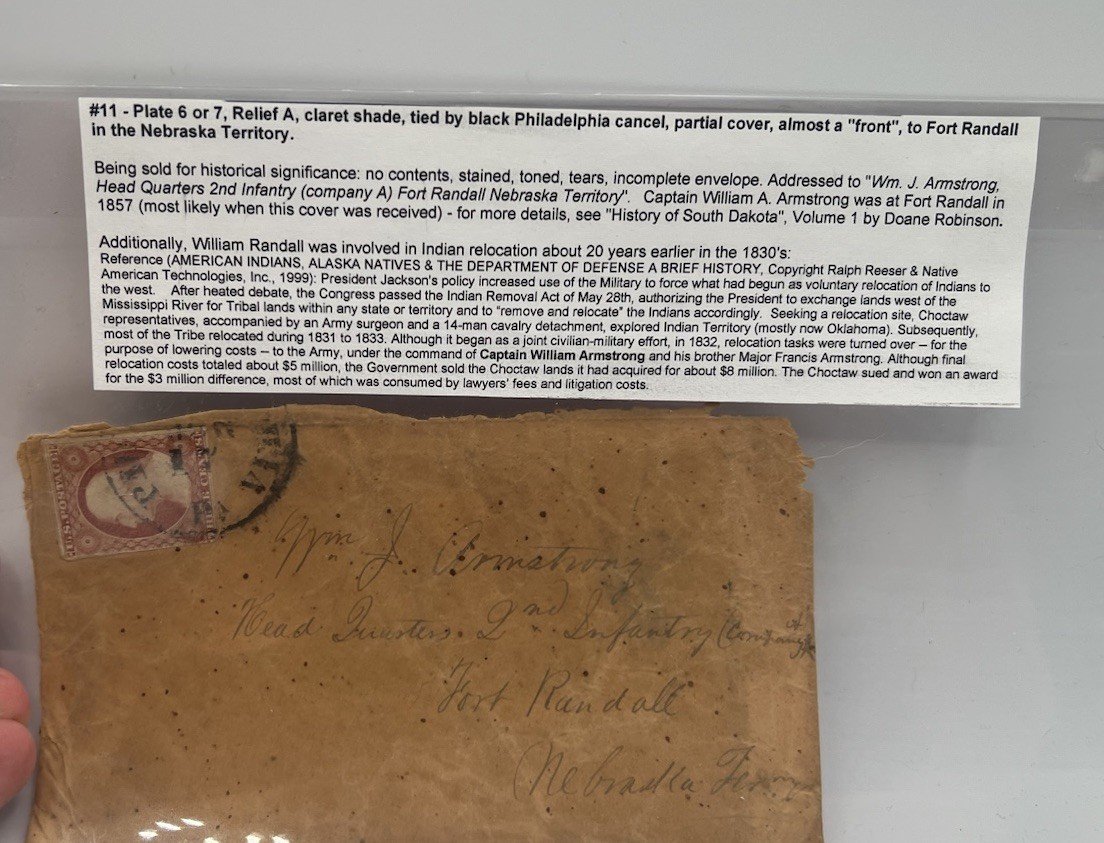 #11 - Plate 6 or 7, Relief A, claret shade, tied by black Philadelphia cancel, partial cover, almost a "front", to Fort Randall
in the Nebraska Territory.
Being sold for historical significance: no contents, stained, toned, tears, incomplete envelope. Addressed to "Wm. J. Armstrong,
Head Quarters 2nd Infantry (company A) Fort Randall Nebraska Territory". Captain William A. Armstrong was at Fort Randall in
1857 (most likely when this cover was received) - for more details, see "History of South Dakota", Volume 1 by Doane Robinson.
Additionally, William Randall was involved in Indian relocation about 20 years earlier in the 1830's:
Reference (AMERICAN INDIANS, ALASKA NATIVES & THE DEPARTMENT OF DEFENSE A BRIEF HISTORY, Copyright Ralph Reeser & Native
American Technologies, Inc., 1999): President Jackson's policy increased use of the Military to force what had begun as voluntary relocation of Indians to
the west. After heated debate, the Congress passed the Indian Removal Act of May 28th, authorizing the President to exchange lands west of the
Mississippi River for Tribal lands within any state or territory and to "remove and relocate" the Indians accordingly. Seeking a relocation site, Choctaw
representatives, accompanied by an Army surgeon and a 14-man cavalry detachment, explored Indian Territory (mostly now Oklahoma). Subsequently,
most of the Tribe relocated during 1831 to 1833. Although it began as a joint civilian-military effort, in 1832, relocation tasks were turned over – for the
purpose of lowering costs – to the Army, under the command of Captain William Armstrong and his brother Major Francis Armstrong. Although final
relocation costs totaled about $5 million, the Government sold the Choctaw lands it had acquired for about $8 million. The Choctaw sued and won an award
for the $3 million difference, most of which was consumed by lawyers' fees and litigation costs.
U.S. POSTAGE
THREE CENTS
Wm J. Armstrong
Head Quarters. 2nd Infantry (Company A
Fort Randall
Nebraska